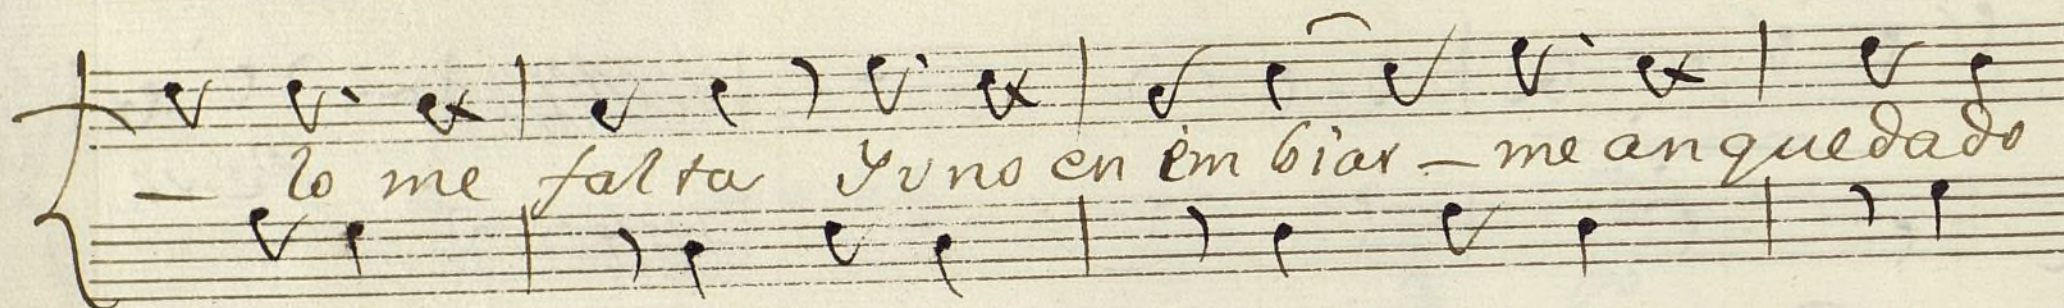 — lo me falta Yvno en embiar — me an quedado